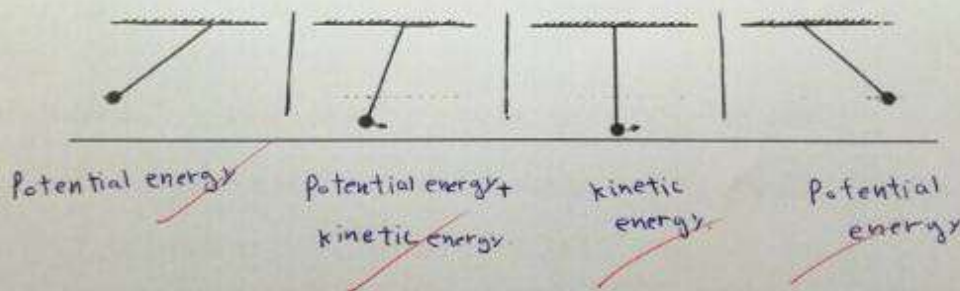 Potential energy
Potential energy+
kinetic energy.
kinetic
energy.
Potential
energy